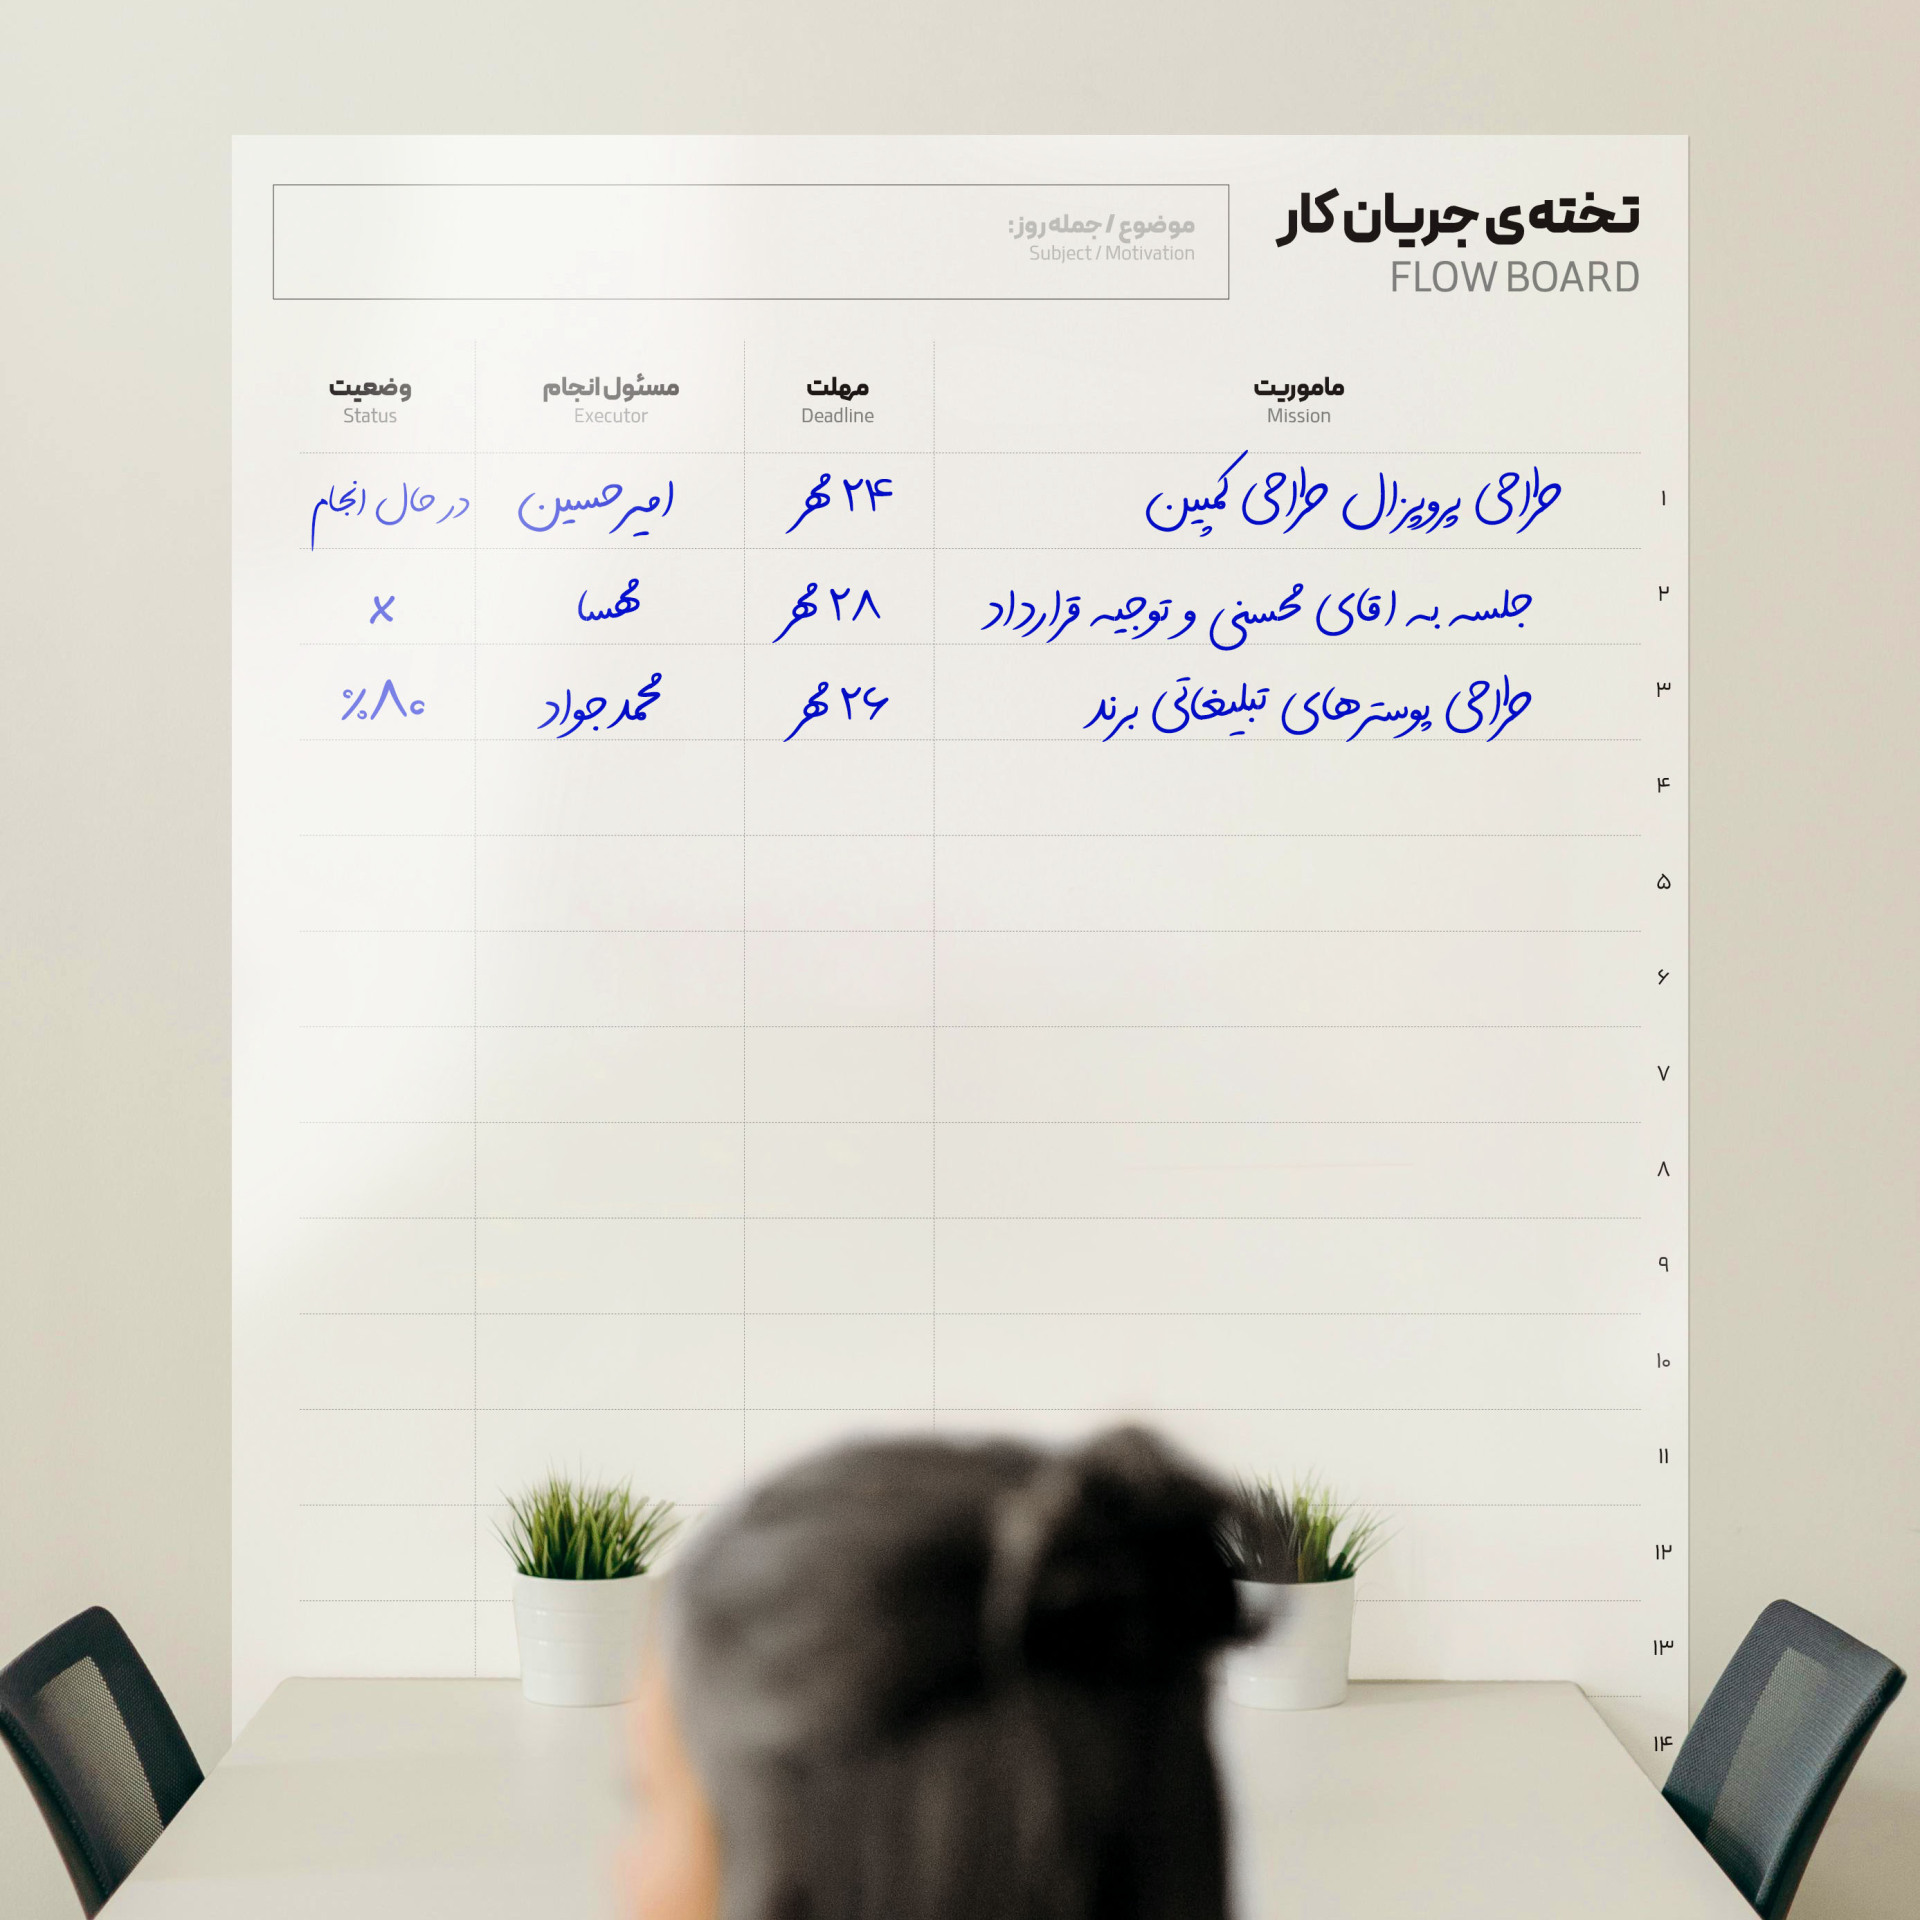 تخته‌ی جریان کار
FLOW BOARD
موضوع / جمله روز:
Subject / Motivation
ماموریت مهلت مسئول انجام وضعیت
Mission Deadline Executor Status
۱ طراحی پروپزال طراحی کمپین ۲۴ مهر امیرحسین در حال انجام
۲ جلسه به اقای محسنی و توجیه قرارداد ۲۸ مهر مهسا x
۳ طراحی پوسترهای تبلیغاتی برند ۲۶ مهر محمدجواد ۸۰٪
۴
۵
۶
۷
۸
۹
۱۰
۱۱
۱۲
۱۳
۱۴